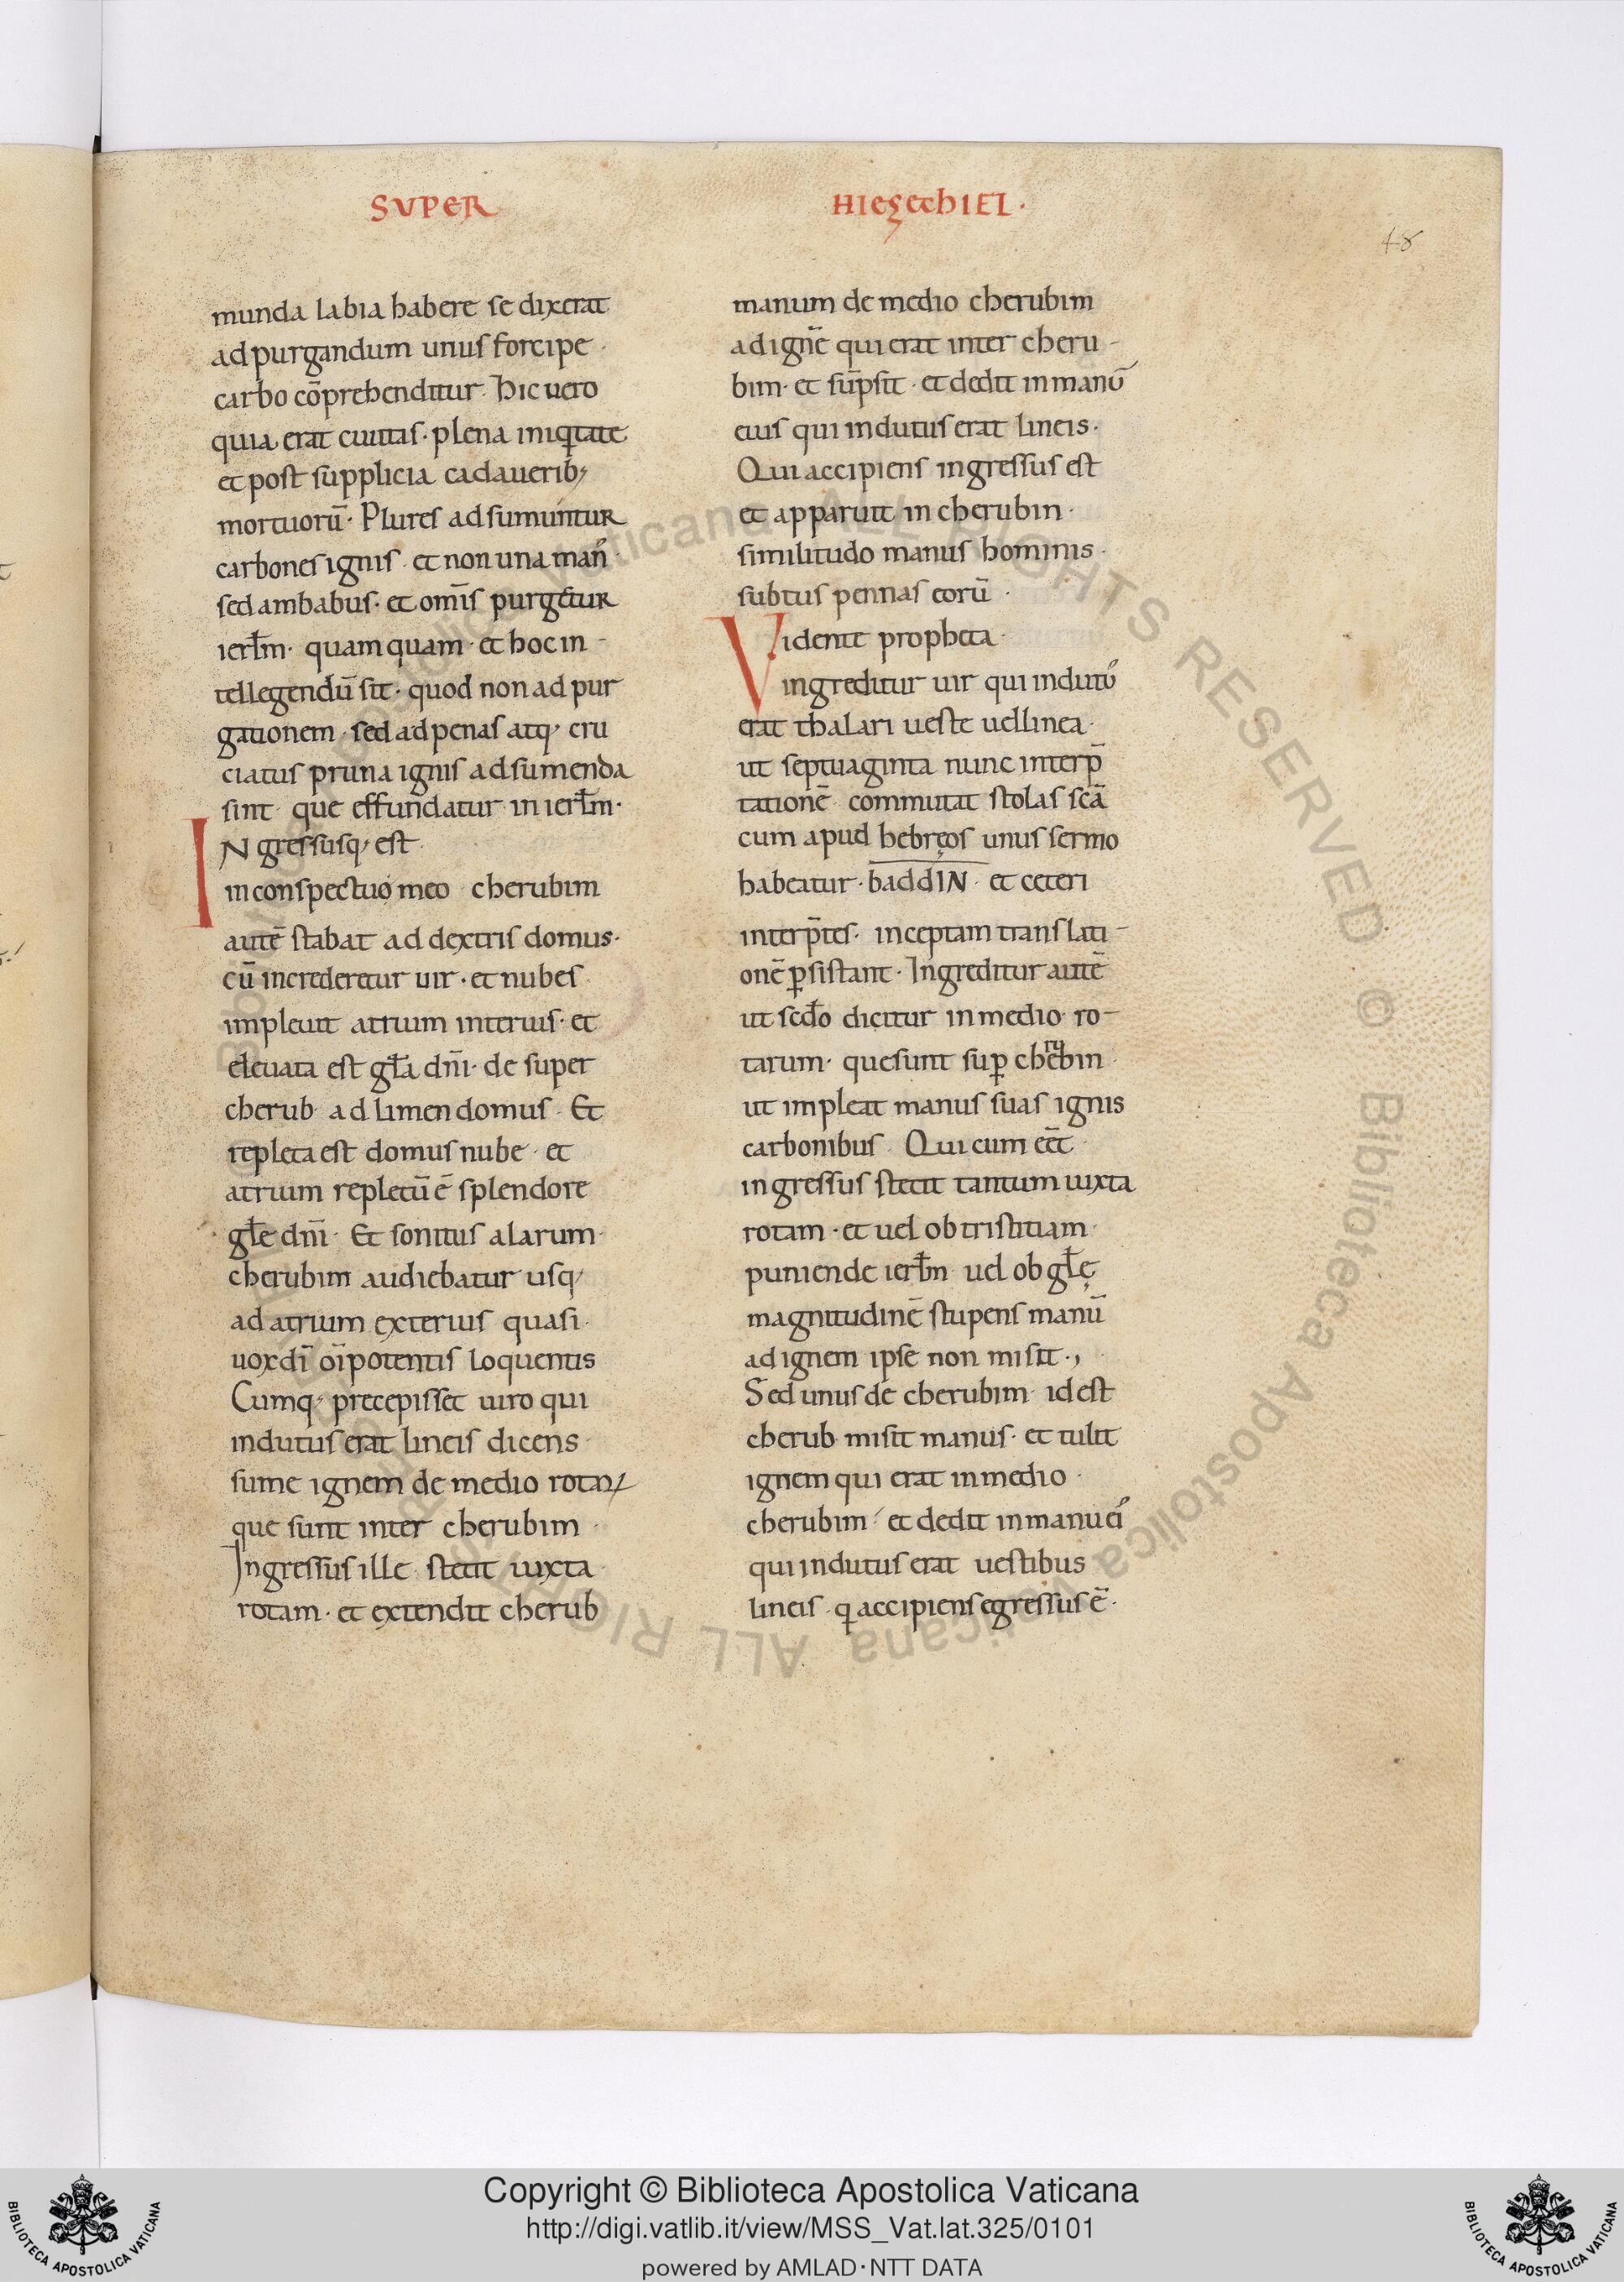 SUPER
HIEZECHIEL·
48
munda labia habere se dixerat
ad purgandum unus forcipe·
carbo cōprehenditur· hic uero
quia erat ciuitas· plena iniqͥtate
et post supplicia cadauerib;
mortuorū· Plures adsumuntur
carbones ignis· et non una man᾽·
sed ambabus· et om̄is purgetur
ierl̄m· quamquam· et hoc in-
tellegendū sit· quod non ad pur
gationem· sed ad penas atq; cru
ciatus pruna ignis adsumenda
sint· que effundatur in ierl̄m·
INgressusq; est·
in conspectuo meo cherubim
autē stabat ad dextris domus·
cū increderetur uir· et nubes
impleuit atrium interius· et
eleuata est gl̄a dn̄i· de super
cherub ad limen domus· Et
repleta est domus nube· et
atrium repletū ē splendore
gl̄e dn̄i· Et sonitus alarum·
cherubim audiebatur usq;
ad atrium exterius quasi·
uox dī oīpotentis loquentis
Cumq; precepisset uiro qui
indutus erat lineis dicens
sume ignem de medio rotaꝝ
que sunt inter cherubim·
Ingressus ille stetit iuxta
rotam· et extendit cherub
manum de medio cherubim
ad ignē qui erat inter cheru-
bim· et sūpsit· et dedit in manū
eius qui indutus erat lineis·
Qui accipiens ingressus est
et apparuit in cherubin·
similitudo manus hominis·
subtus pennas eorū·
Videnit propheta·
ingreditur uir qui indut᾽
erat thalari ueste uel linea·
ut septuaginta nunc interp̄
tationē commutat stolas scā
cum apud hebręos unus sermo
habeatur· baddIN· et ceteri
interp̄tes· inceptam translati-
onē ꝑsistant· Ingreditur autē
ut secd̄o dicitur in medio ro-
tarum· que sunt suꝑ cherubin
ut impleat manus suas ignis
carbonibus· Qui cum eēt
ingressus stetit tantum iuxta
rotam· et uel ob tristitiam·
puniende ierl̄m uel ob gl̄ę
magnitudinē stupens manū
ad ignem ipse non misit·,
Sed unus de cherubim· id est
cherub misit manus· et tulit
ignem qui erat in medio·
cherubim· et dedit in manu ei᾽
qui indutus erat uestibus
lineis· qͥ accipiens egressus ē·
Biblioteca Apostolica Vaticana ALL RIGHTS RESERVED © Biblioteca Apostolica Vaticana ALL RIGHTS RESERVED ©
BIBLIOTECA APOSTOLICA VATICANA
Copyright © Biblioteca Apostolica Vaticana
http://digi.vatlib.it/view/MSS_Vat.lat.325/0101
powered by AMLAD·NTT DATA
BIBLIOTECA APOSTOLICA VATICANA